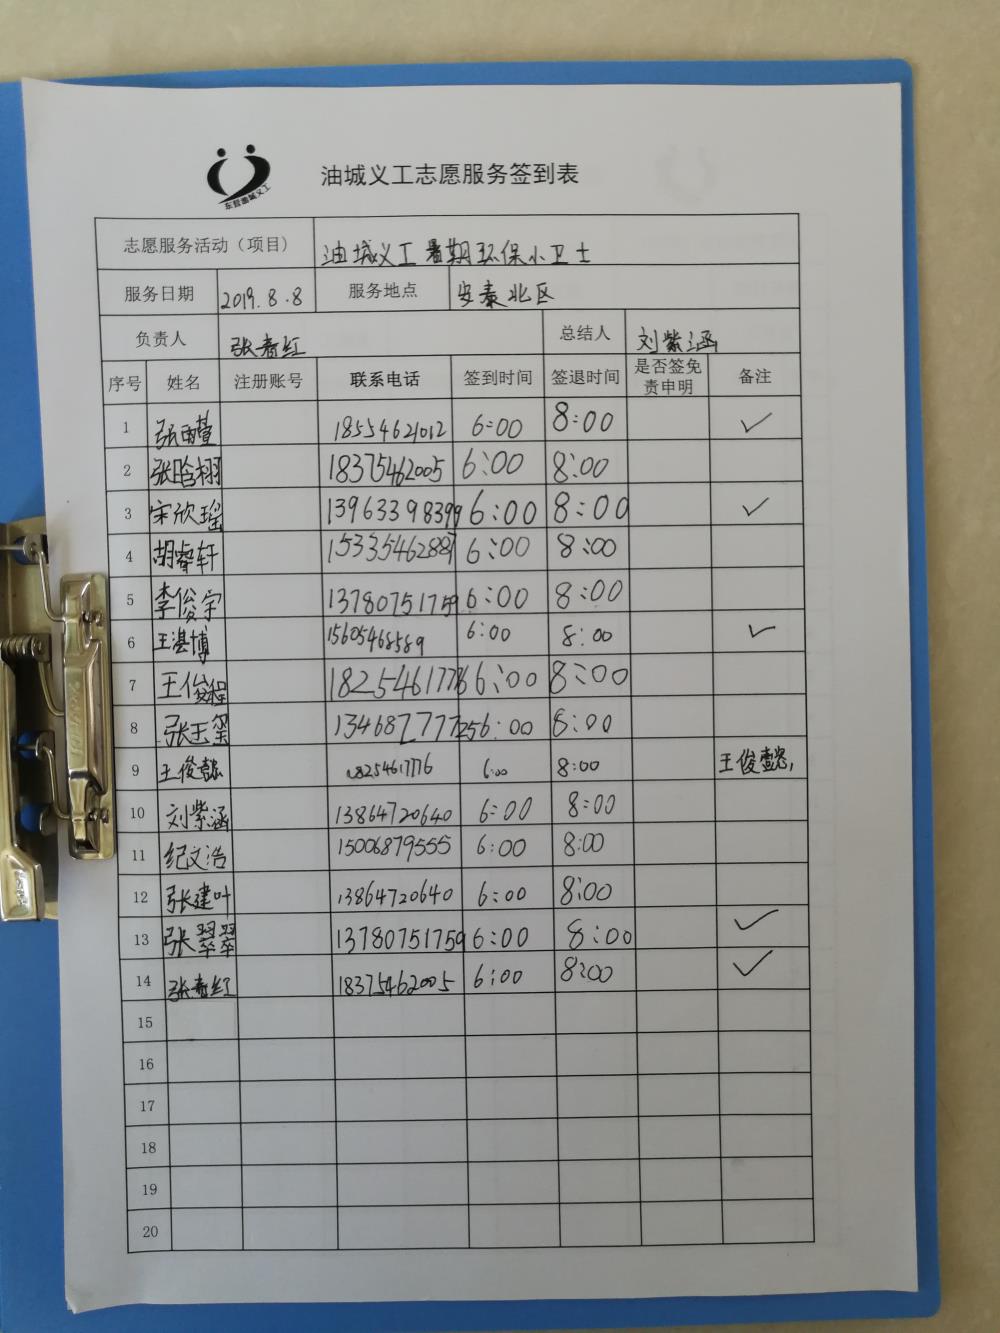 东营油城义工
油城义工志愿服务签到表
志愿服务活动（项目） 油城义工暑期环保小卫士
服务日期 2019.8.8 服务地点 安泰北区
负责人 张春红 总结人 刘紫涵
序号 姓名 注册账号 联系电话 签到时间 签退时间 是否签免责申明 备注
1 张雨萱 18554621012 6:00 8:00 ✓
2 张晗栩 18375462005 6:00 8:00
3 宋欣瑶 13963398399 6:00 8:00 ✓
4 胡睿轩 15335462887 6:00 8:00
5 李俊宇 13780751759 6:00 8:00
6 王湛博 15605468589 6:00 8:00 ✓
7 王俊程 18254617776 6:00 8:00
8 张玉玺 13468277725 6:00 8:00
9 王俊懿 18254617776 6:00 8:00 王俊懿
10 刘紫涵 13864720640 6:00 8:00
11 纪文浩 15006879555 6:00 8:00
12 张建叶 13864720640 6:00 8:00
13 张翠翠 13780751759 6:00 8:00 ✓
14 张春红 18375462005 6:00 8:00 ✓
15
16
17
18
19
20